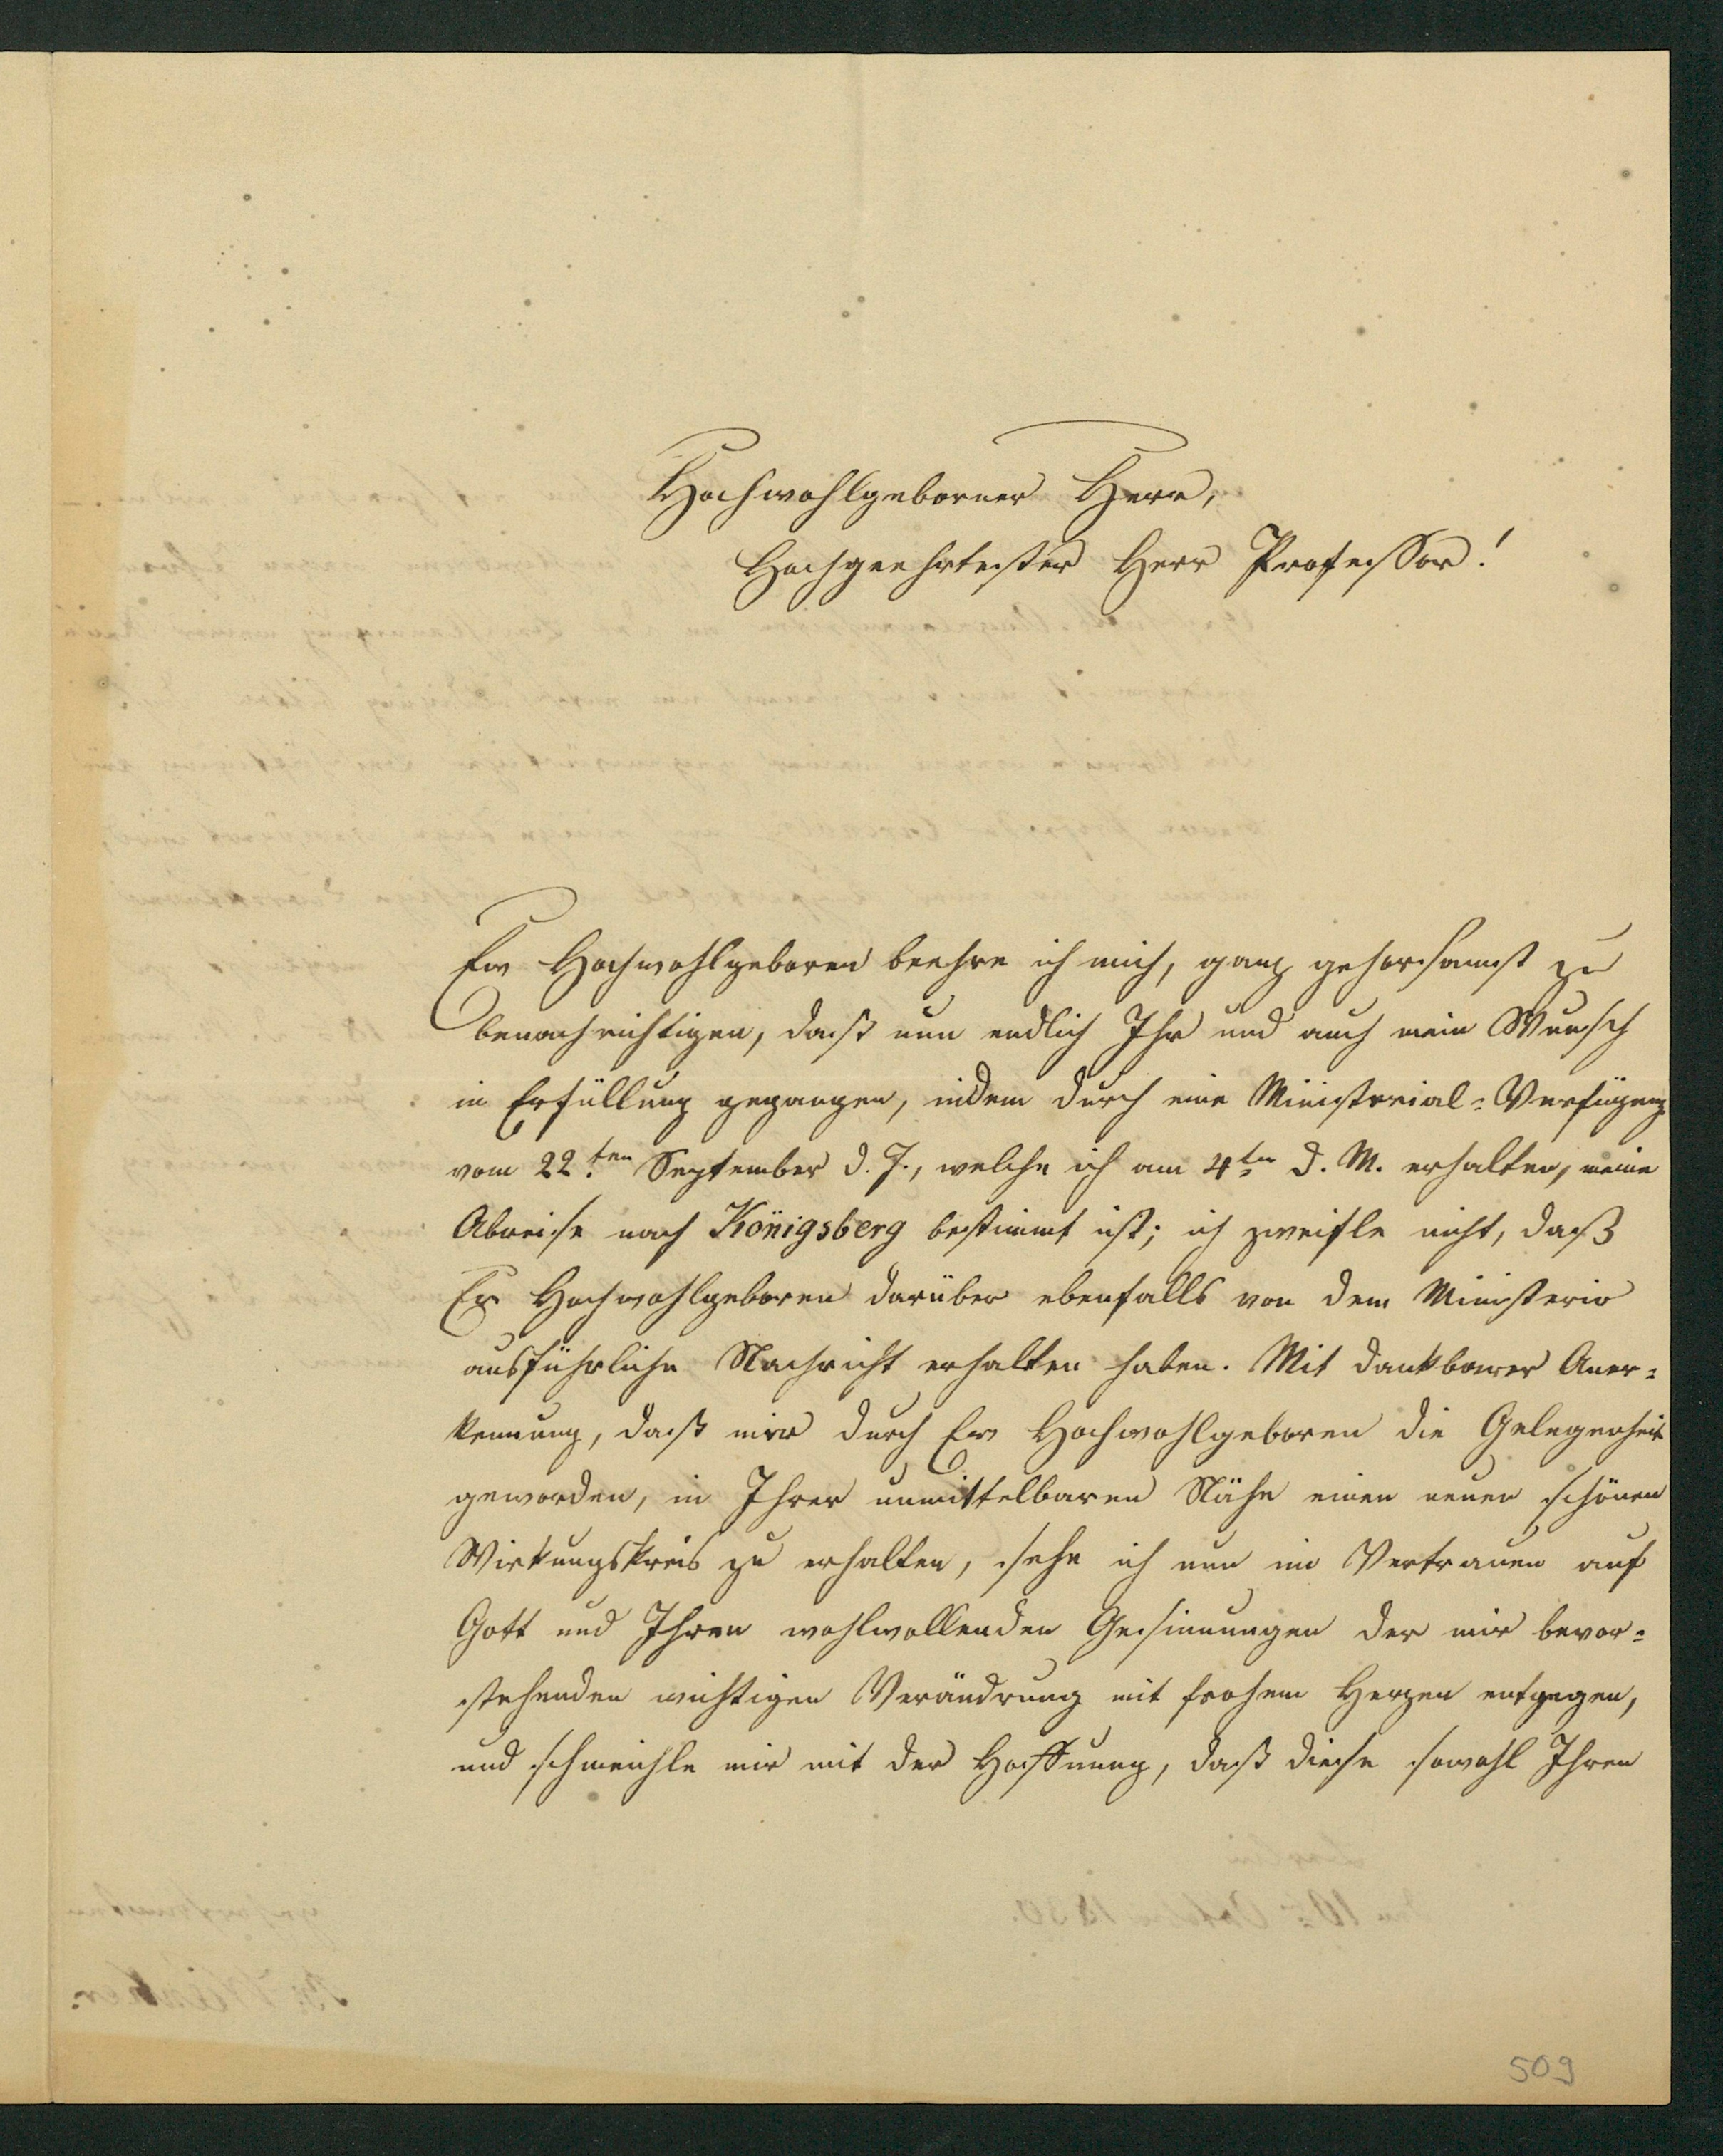 Hochwohlgeborner Herr,
Hochgeehrtester Herr Professor!
Ew Hochwohlgeboren beehre ich mich, ganz gehorsamst zu
benachrichtigen, daß nun endlich Ihr und auch mein Wunsch
in Erfüllung gegangen, indem durch eine Ministerial-Verfügung
vom 22ten September d. J., welche ich am 4ten d. M. erhalten, meine
Abreise nach Königsberg bestimmt ist; ich zweifle nicht, daß
Ew Hochwohlgeboren darüber ebenfalls von dem Ministerio
ausführliche Nachricht erhalten haben. Mit dankbarer Aner-
kennung, daß mir durch Ew Hochwohlgeboren die Gelegenheit
geworden, in Ihrer unmittelbaren Nähe einen neuen schönen
Wirkungskreis zu erhalten, sehe ich nun im Vertrauen auf
Gott und Ihren wohlwollenden Gesinnungen der mir bevor-
stehenden wichtigen Verändrung mit frohem Herzen entgegen,
und schmeichle mir mit der Hoffnung, daß diese sowohl Ihren
509